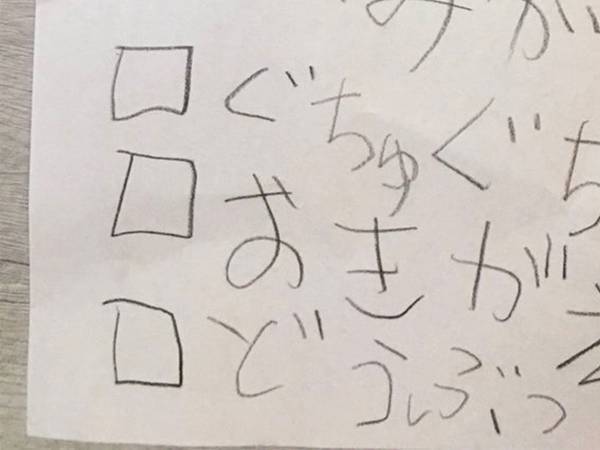 みが
□ ぐちゅぐち
□ おきがえ
□ どうぶつ